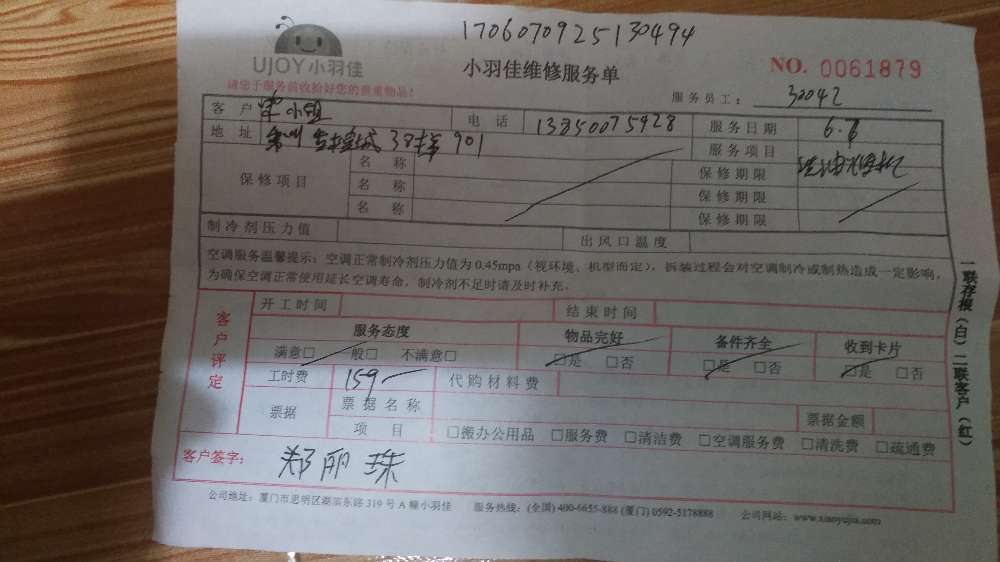 1706070925130494
UJOY小羽佳
小羽佳维修服务单
NO. 0061879
请您于服务前收拾好您的贵重物品!
服务员工: 30042
客户 小姐 电话 13850075428 服务日期 6.7
地址 38栋 901 服务项目 洗油烟机
保修项目
名称 保修期限
名称 保修期限
名称 保修期限
制冷剂压力值 出风口温度
空调服务温馨提示:空调正常制冷剂压力值为0.45mpa(视环境、机型而定),拆装过程会对空调制冷或制热造成一定影响,
为确保空调正常使用延长空调寿命,制冷剂不足时请及时补充。
客户评定
开工时间 结束时间
服务态度 物品完好 备件齐全 收到卡片
满意□ 一般□ 不满意□ □是 □否 □是 □否 □是 □否
工时费 159 代购材料费
票据 票据名称 票据金额
项目 □搬办公用品 □服务费 □清洁费 □空调服务费 □清洗费 □疏通费
客户签字: 郑丽珠
公司地址:厦门市思明区湖滨东路319号A幢小羽佳 服务热线:(全国) 400-6655-888 (厦门) 0592-5178888 公司网站: www.xiaoyujia.com
一联存根(白)二联客户(红)